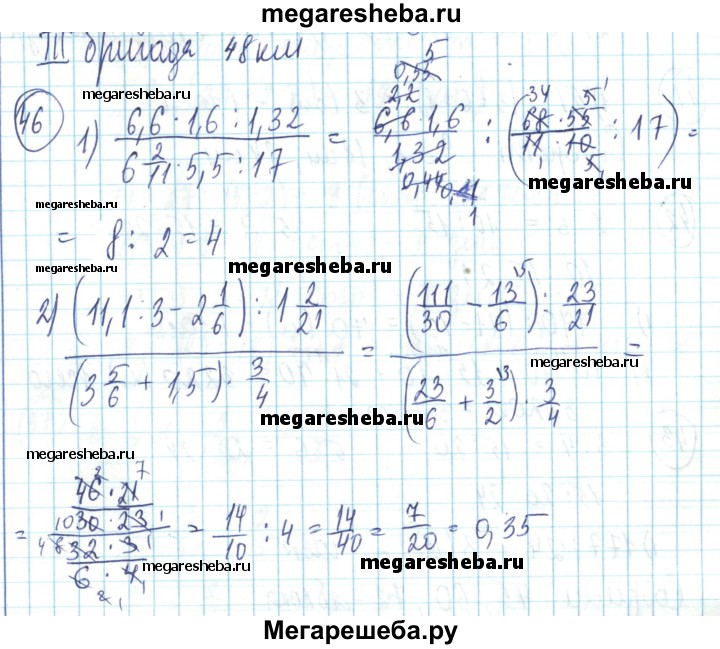 megaresheba.ru
III бригада 48 км
megaresheba.ru
46 1) (6,6 · 1,6 : 1,32) / (6 2/11 · 5,5 : 17) = (6,6 · 1,6) / 1,32 : ((68 · 55) / (11 · 10) : 17) =
megaresheba.ru
megaresheba.ru
= 8 : 2 = 4
megaresheba.ru
megaresheba.ru
2) ((11,1 : 3 − 2 1/6) : 1 2/21) / ((3 5/6 + 1,5) · 3/4) = ((111/30 − 13/6) : 23/21) / ((23/6 + 3/2) · 3/4) =
megaresheba.ru
megaresheba.ru
megaresheba.ru
= ((46 · 21) / (30 · 23)) / ((32 · 3) / (6 · 4)) = 14/10 : 4 = 14/40 = 7/20 = 0,35
megaresheba.ru
megaresheba.ru
Мегарешеба.ру